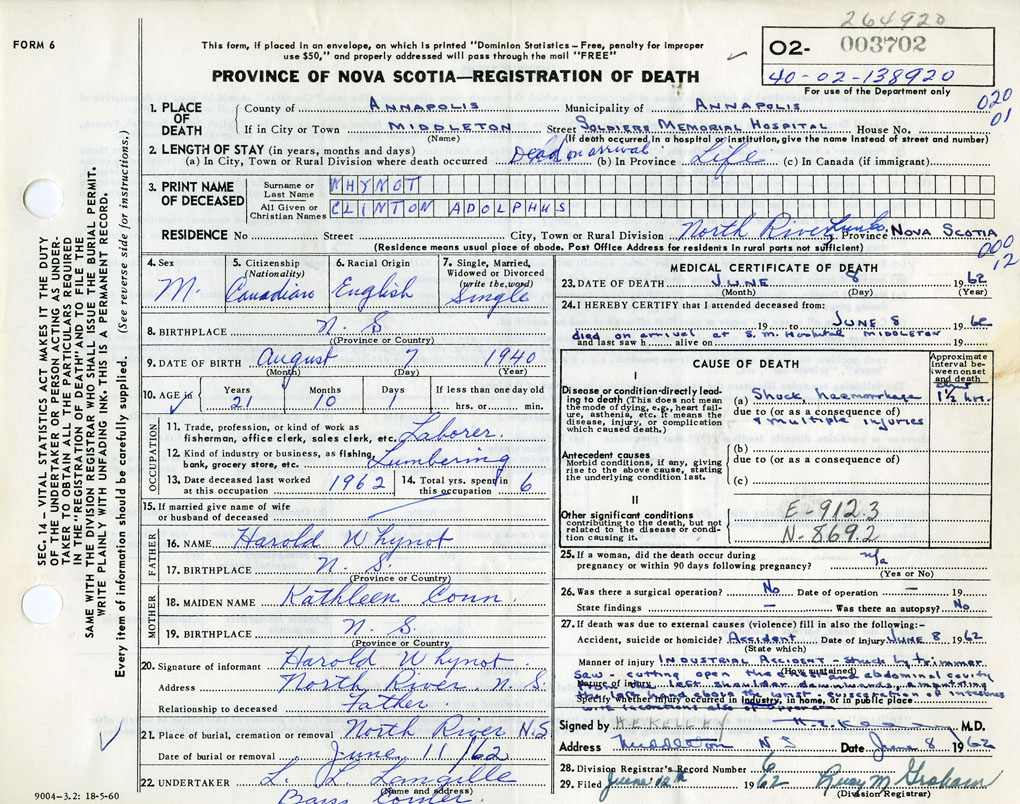 264920
FORM 6
This form, if placed in an envelope, on which is printed "Dominion Statistics – Free, penalty for improper
use $50," and properly addressed will pass through the mail "FREE"
O2- 003702
40-02-138920
For use of the Department only
PROVINCE OF NOVA SCOTIA—REGISTRATION OF DEATH
020
01
SEC. 14 – VITAL STATISTICS ACT MAKES IT THE DUTY
OF THE UNDERTAKER OR PERSON ACTING AS UNDER-
TAKER TO OBTAIN ALL THE PARTICULARS REQUIRED
IN THE "REGISTRATION OF DEATH" AND TO FILE THE
SAME WITH THE DIVISION REGISTRAR WHO SHALL ISSUE THE BURIAL PERMIT.
WRITE PLAINLY WITH UNFADING INK. THIS IS A PERMANENT RECORD.
Every item of information should be carefully supplied. (See reverse side for instructions.)
1. PLACE OF DEATH
County of ANNAPOLIS Municipality of ANNAPOLIS
If in City or Town MIDDLETON (Name) Street SOLDIERS MEMORIAL HOSPITAL House No.
(If death occurred in a hospital or institution, give the name instead of street and number)
2. LENGTH OF STAY (in years, months and days)
(a) In City, Town or Rural Division where death occurred Dead on arrival (b) In Province Life (c) In Canada (if immigrant)
3. PRINT NAME OF DECEASED
Surname or Last Name WHYNOT
All Given or Christian Names CLINTON ADOLPHUS
RESIDENCE No Street City, Town or Rural Division North River Lun. Co. Province NOVA SCOTIA
(Residence means usual place of abode. Post Office Address for residents in rural parts not sufficient)
000
12
4. Sex M.
5. Citizenship (Nationality) Canadian
6. Racial Origin English
7. Single, Married, Widowed or Divorced (write the word) Single
8. BIRTHPLACE N. S
(Province or Country)
9. DATE OF BIRTH August 7 1940
(Month) (Day) (Year)
10. AGE in Years 21 Months 10 Days 1 If less than one day old hrs. or min.
OCCUPATION
11. Trade, profession, or kind of work as
fisherman, office clerk, sales clerk, etc. Laborer.
12. Kind of industry or business, as fishing,
bank, grocery store, etc. Lumbering
13. Date deceased last worked at this occupation 1962
14. Total yrs. spent in this occupation 6
15. If married give name of wife
or husband of deceased
FATHER
16. NAME Harold Whynot
17. BIRTHPLACE N. S.
(Province or Country)
MOTHER
18. MAIDEN NAME Kathleen Conn.
19. BIRTHPLACE N. S.
(Province or Country)
20. Signature of informant Harold Whynot.
Address North River. N. S.
Relationship to deceased Father.
21. Place of burial, cremation or removal North River N.S
Date of burial or removal June 11/62
22. UNDERTAKER L. L Langille
(Name and address)
9004-3.2: 18-5-60
MEDICAL CERTIFICATE OF DEATH
23. DATE OF DEATH JUNE 8 1962
(Month) (Day) (Year)
24. I HEREBY CERTIFY that I attended deceased from:
19 to JUNE 8 1962
died on arrival at S.M. Hospital MIDDLETON
and last saw h alive on 19
CAUSE OF DEATH
Approximate interval between onset and death
I
Disease or condition directly leading to death (This does not mean
the mode of dying, e.g., heart failure, asthenia, etc. It means the
disease, injury, or complication
which caused death.)
(a) Shock, haemorrhage
1½ hrs.
due to (or as a consequence of)
& multiple injuries
Antecedent causes
Morbid conditions, if any, giving
rise to the above cause, stating
the underlying condition last.
(b)
due to (or as a consequence of)
(c)
II
Other significant conditions
contributing to the death, but not
related to the disease or condition causing it.
E-912.3
N-869.2
25. If a woman, did the death occur during
pregnancy or within 90 days following pregnancy? n/a
(Yes or No)
26. Was there a surgical operation? No Date of operation – 19
State findings – Was there an autopsy? No
27. If death was due to external causes (violence) fill in also the following:-
Accident, suicide or homicide? Accident Date of injury JUNE 8 1962
(State which)
Manner of injury INDUSTRIAL ACCIDENT – struck by trimmer
(How sustained)
saw – cutting open the chest and abdominal cavity
Nature of injury left shoulder downwards, amputating
Specify whether injury occurred in industry, in home, or in public place
the left hand above the wrist – evisceration of
Signed by H.E. KELLEY M.D.
Address Middleton N S Date June 8 1962
28. Division Registrar's Record Number 6
29. Filed June 12th 1962 Ruby M Graham
(Division Registrar)